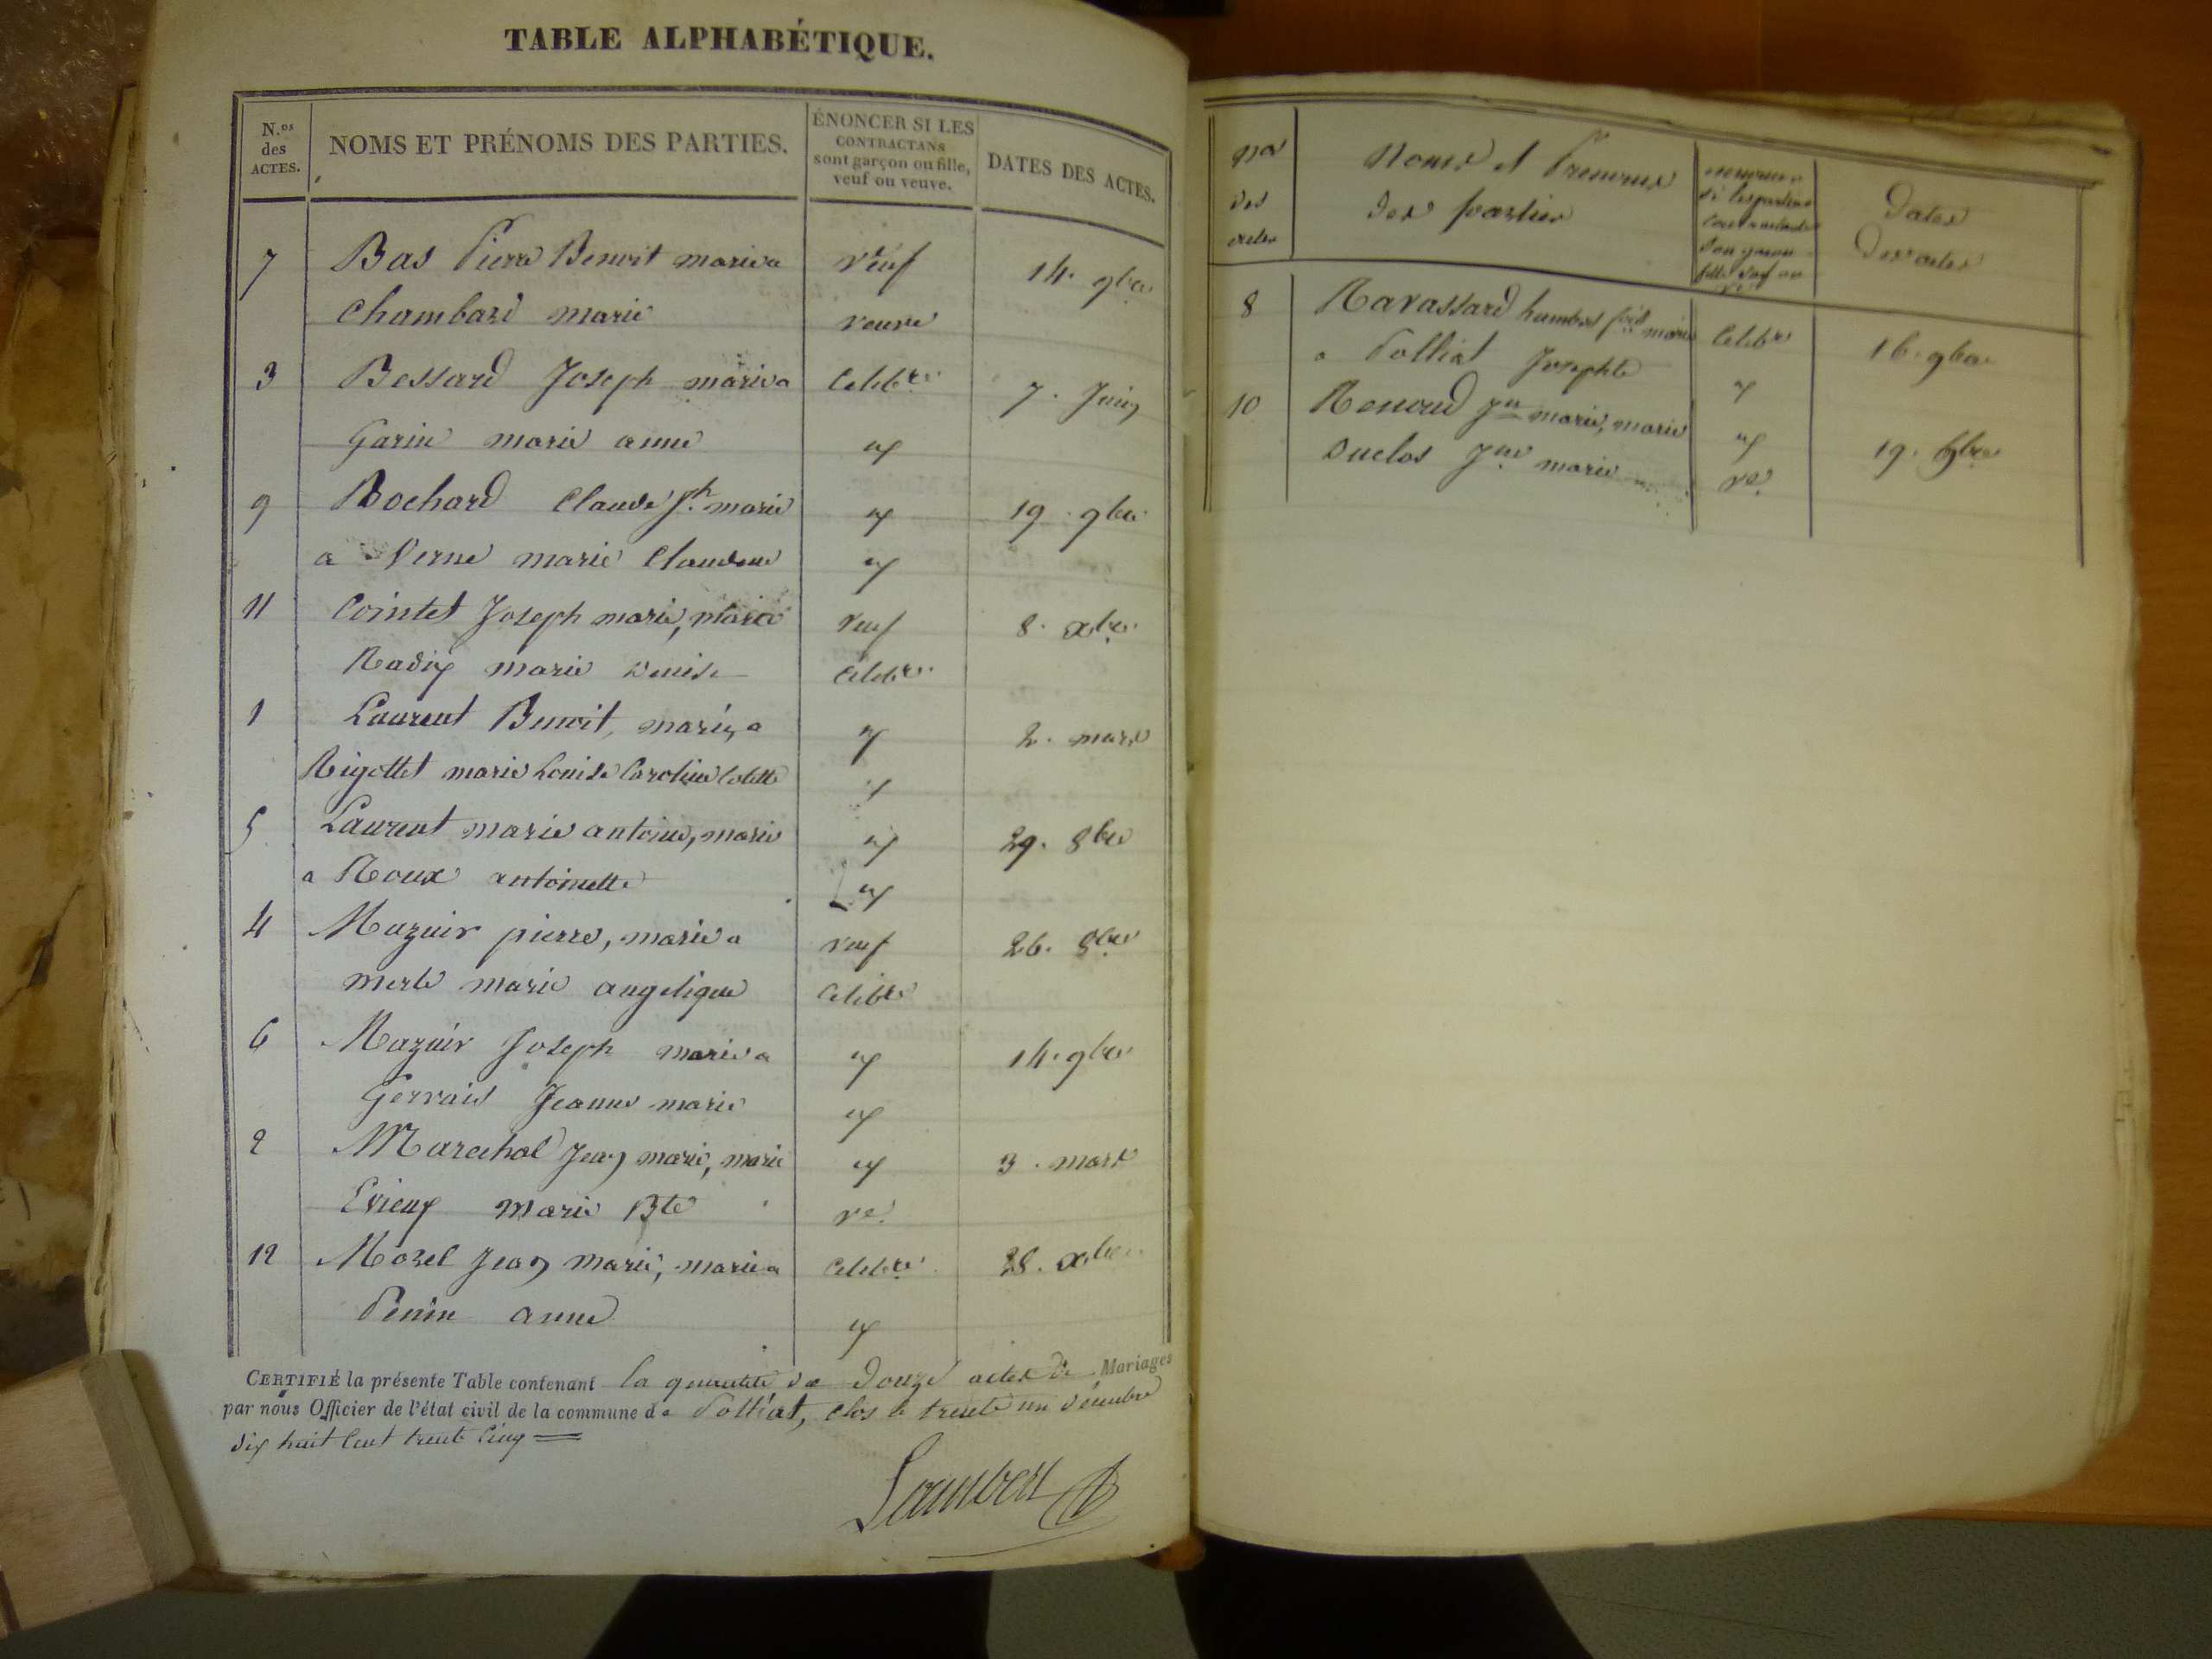 TABLE ALPHABÉTIQUE.
N.os des ACTES. NOMS ET PRÉNOMS DES PARTIES. ÉNONCER SI LES CONTRACTANS sont garçon ou fille, veuf ou veuve. DATES DES ACTES.
7 Bas Pierre Benoit marié a veuf 14. 9bre
Chambard marie veuve
3 Bessard Joseph marié a Celibre 7. Juin
Garin marie anne
9 Bochard Claude Jh. marié 19. 9bre
a Verne marie Claudine
11 Cointet Joseph marie, marié veuf 8. xbre
Radix marie Denise Celibre
1 Laurent Benoit, marié, a 2. mars
Rigottet marie Louise Caroline Colette
5 Laurent marie antoine, marié 29. 8bre
a Roux antoinette
4 Mazuir pierre, marié a veuf 26. 8bre
merle marie angelique Celibre
6 Mazuir Joseph marié a 14. 9bre
Gervais Jeanne marie
2 Marechal Jean marie, marié 3. mars
Evieux marie Bte ve.
12 Morel Jean marie, marié a Celibre 28. xbre
Penin anne
CERTIFIÉ la présente Table contenant la quantité de Douze actes de Mariages
par nous Officier de l'état civil de la commune de Polliat, clos le trente un décembre
dix huit Cent trente Cinq
nos des actes Noms et Prenoms des parties Dates des actes
8 Ravassard marié Celibre 16. 9bre
a Polliat Josephte
10 Renoud Jn marie, marié 19. 9bre
Duclos Jne marie ve.